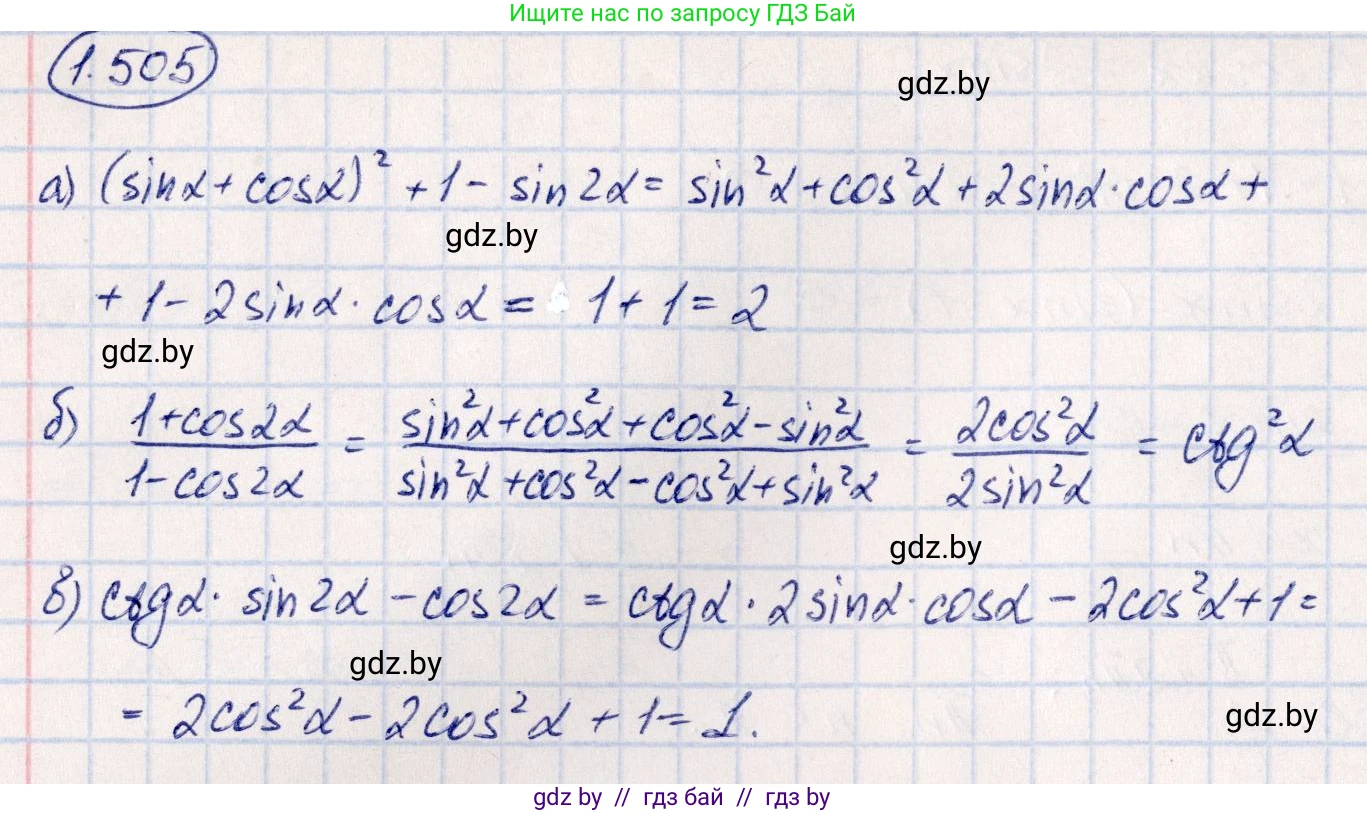 Ищите нас по запросу ГДЗ Бай
1.505
gdz.by
а) (sinα + cosα)² + 1 - sin2α = sin²α + cos²α + 2sinα · cosα +
gdz.by
+ 1 - 2sinα · cosα = 1 + 1 = 2
gdz.by
б) (1 + cos2α)/(1 - cos2α) = (sin²α + cos²α + cos²α - sin²α)/(sin²α + cos²α - cos²α + sin²α) = 2cos²α/2sin²α = ctg²α
gdz.by
в) ctgα · sin2α - cos2α = ctgα · 2sinα · cosα - 2cos²α + 1 =
gdz.by
= 2cos²α - 2cos²α + 1 = 1.
gdz.by
gdz by // гдз бай // гдз by